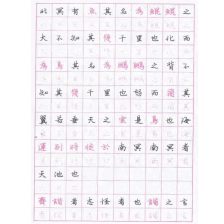 北冥有魚其名為鯤鯤之
大不知其幾千里也化而
為鳥其名為鵬鵬之背不
知其幾千里也怒而飛其
翼若垂天之雲是鳥也海
運則將徙於南冥南冥者
天池也
齊諧者志怪者也諧之言